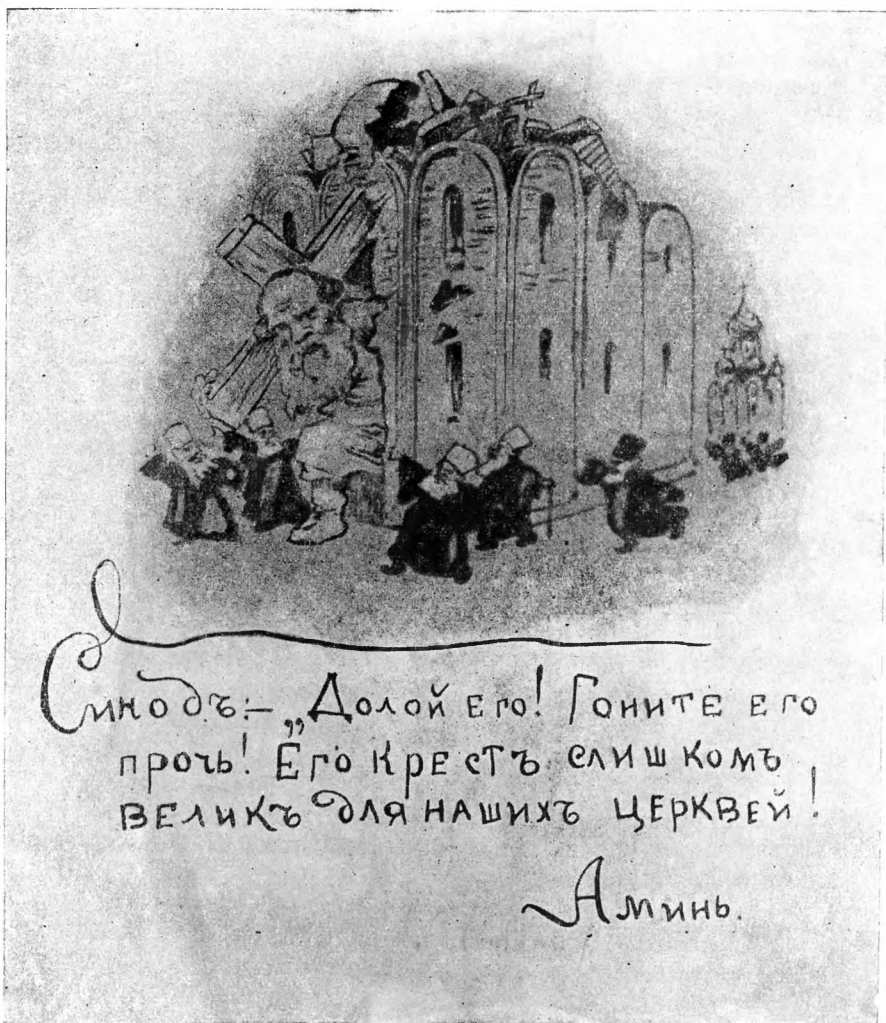 Синодъ:— „Долой его! Гоните его
прочь! Его крестъ слишкомъ
великъ для нашихъ церквей!
Аминь.